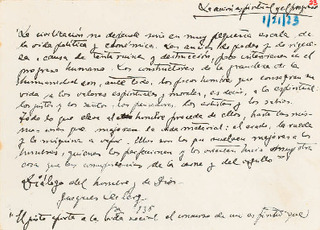 La acción espiritual y el progreso
23
1/21/23
La civilización no depende sino en muy pequeña escala de
la vida política y económica. Las ansias de poder y de rique
za, causa de tanta ruina y destrucción, poco intervienen en el
progreso humano. Los constructores de la grandeza de la
humanidad son, ante todo, los pocos hombres que consagran su
vida a los valores espirituales y morales, es decir, a lo espiritual:
los justos y los santos, los pensadores, los artistas y los sabios.
Todo lo que eleva al hombre procede de ellos, hasta las mis
mas cosas que mejoran la vida material: el arado, la rueda
y la máquina a vapor. Ellos son los que vuelven mejores a los
hombres, quienes los perfeccionan y los orientan hacia otra
cosa que las complacencias de la carne y del orgullo
Diálogo del hombre y de Dios.
Jacques Leclercq
Pag 136
El justo aporta a la vida social el concurso de un espíritu que